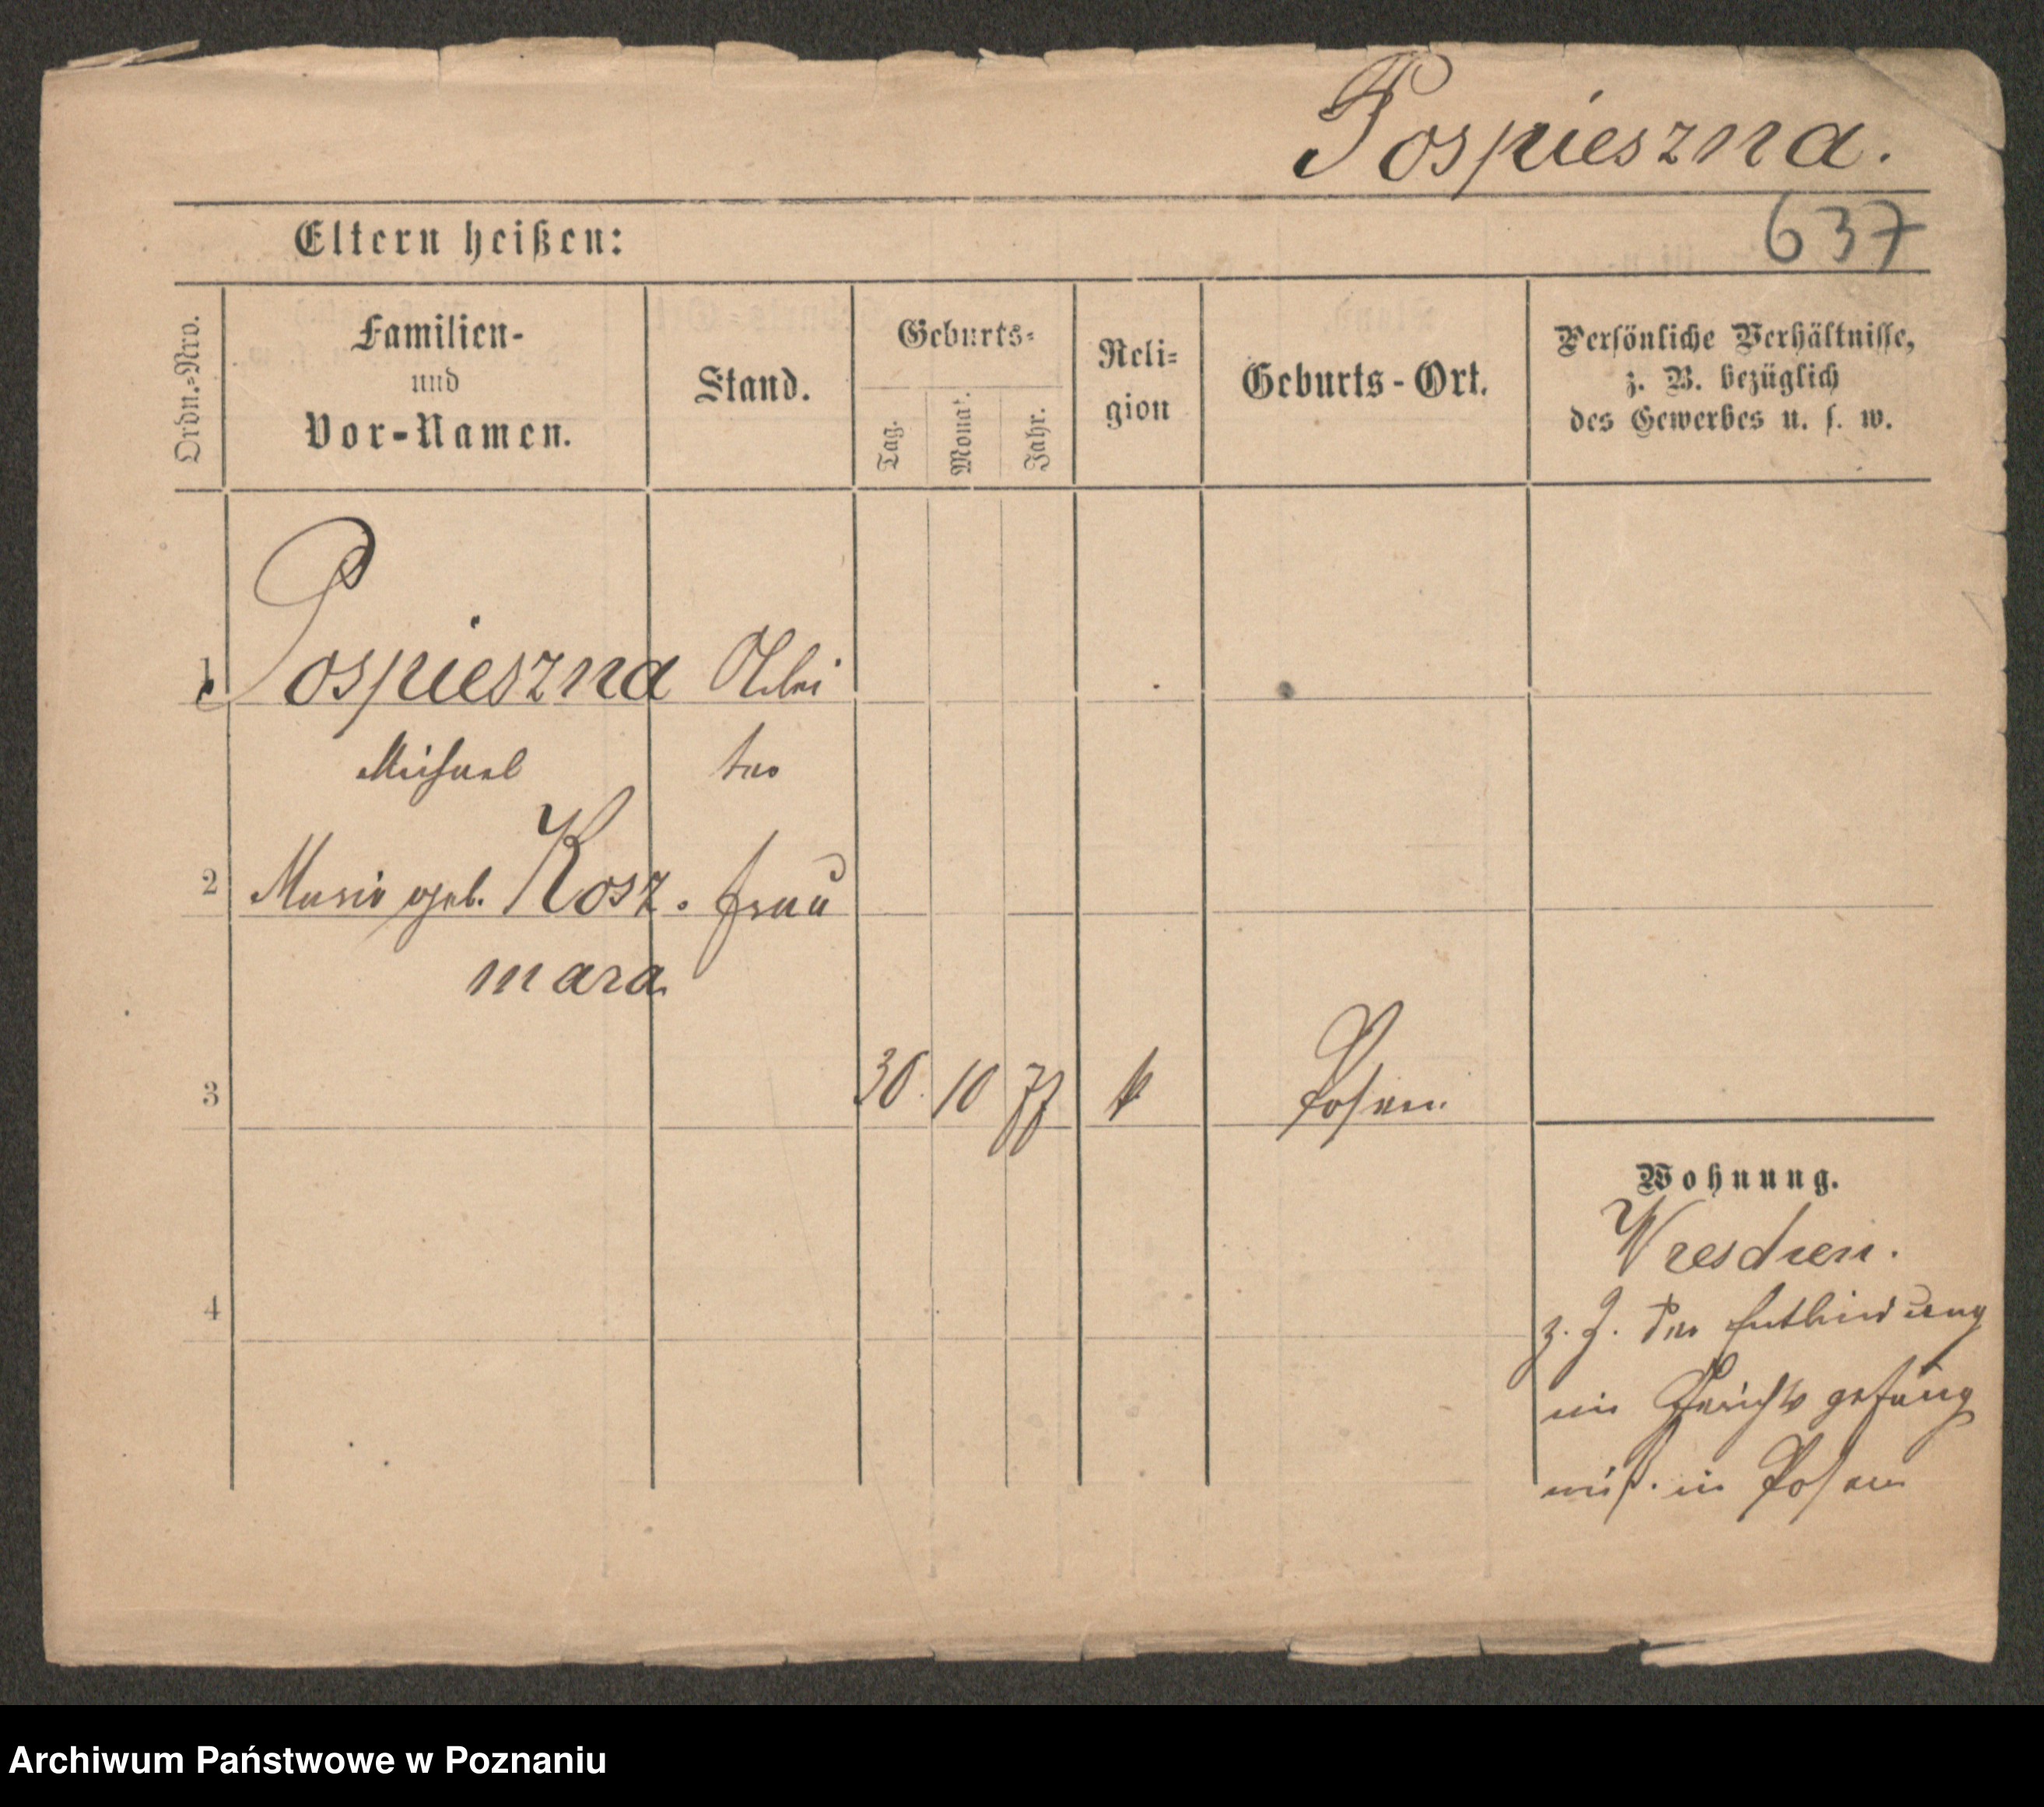 Pospieszna.
637
Eltern heißen:
Ordn.=Nro.
Familien-
und
Vor-Namen.
Stand.
Geburts=
Tag.
Monat.
Jahr.
Reli=
gion
Geburts-Ort.
Persönliche Verhältnisse,
z. B. bezüglich
des Gewerbes u. s. w.
1 Pospieszna Arbei
Michael ter
2 Marie geb. Kosz. Frau
mara
3 30. 10 77 k Posen.
Wohnung.
Dresden.
4 z. Z. der Entbindung
im Gerichts gefäng
niß. in Posen
Archiwum Państwowe w Poznaniu